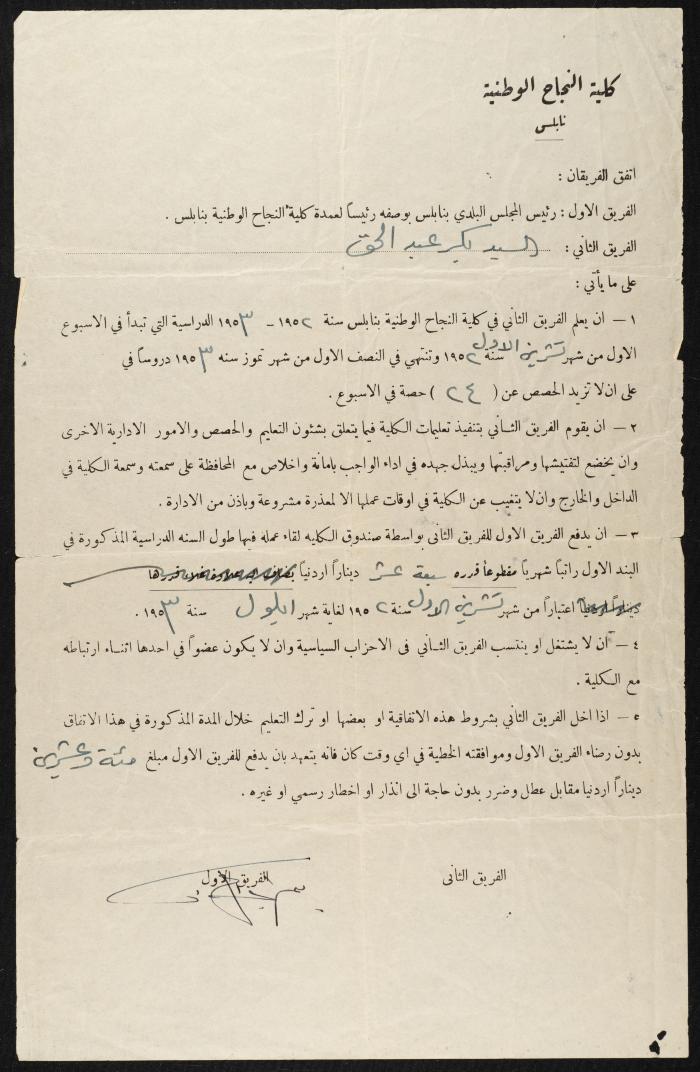 كلية النجاح الوطنية
نابلس
اتفق الفريقان :
الفريق الاول : رئيس المجلس البلدي بنابلس بوصفه رئيساً لعمدة كلية النجاح الوطنية بنابلس .
الفريق الثاني : السيد بكر عبد الحق
على ما يأتي :
١ — ان يعلم الفريق الثاني في كلية النجاح الوطنية بنابلس سنة ١٩٥٢ — ١٩٥٣ الدراسية التي تبدأ في الاسبوع
الاول من شهر تشرين الاول سنة ١٩٥٢ وتنتهي في النصف الاول من شهر تموز سنه ١٩٥٣ دروساً في
على ان لا تزيد الحصص عن ( ٢٤ ) حصة في الاسبوع .
٢ — ان يقوم الفريق الثاني بتنفيذ تعليمات الكلية فيما يتعلق بشئون التعليم والحصص والامور الادارية الاخرى
وان يخضع لتفتيشها ومراقبتها ويبذل جهده في اداء الواجب بامانة واخلاص مع المحافظة على سمعته وسمعة الكلية في
الداخل والخارج وان لا يتغيب عن الكلية في اوقات عملها الا لمعذرة مشروعة وباذن من الادارة .
٣ — ان يدفع الفريق الاول للفريق الثانى بواسطة صندوق الكليه لقاء عمله فيها طول السنه الدراسية المذكورة في
البند الاول راتباً شهرياً مقطوعاً قدره سبعة عشر ديناراً اردنياً
اعتباراً من شهر تشرين الاول سنة ١٩٥٢ لغاية شهر ايلول سنة ١٩٥٣ .
٤ — ان لا يشتغل او ينتسب الفريق الثانى فى الاحزاب السياسية وان لا يكون عضواً في احدها اثناء ارتباطه
مع الكلية .
٥ — اذا اخل الفريق الثاني بشروط هذه الاتفاقية او بعضها او ترك التعليم خلال المدة المذكورة في هذا الاتفاق
بدون رضاء الفريق الاول وموافقته الخطية في اي وقت كان فانه يتعهد بان يدفع للفريق الاول مبلغ مئة وعشرين
ديناراً اردنيا مقابل عطل وضرر بدون حاجة الى انذار او اخطار رسمي او غيره .
الفريق الثانى
الفريق الاول